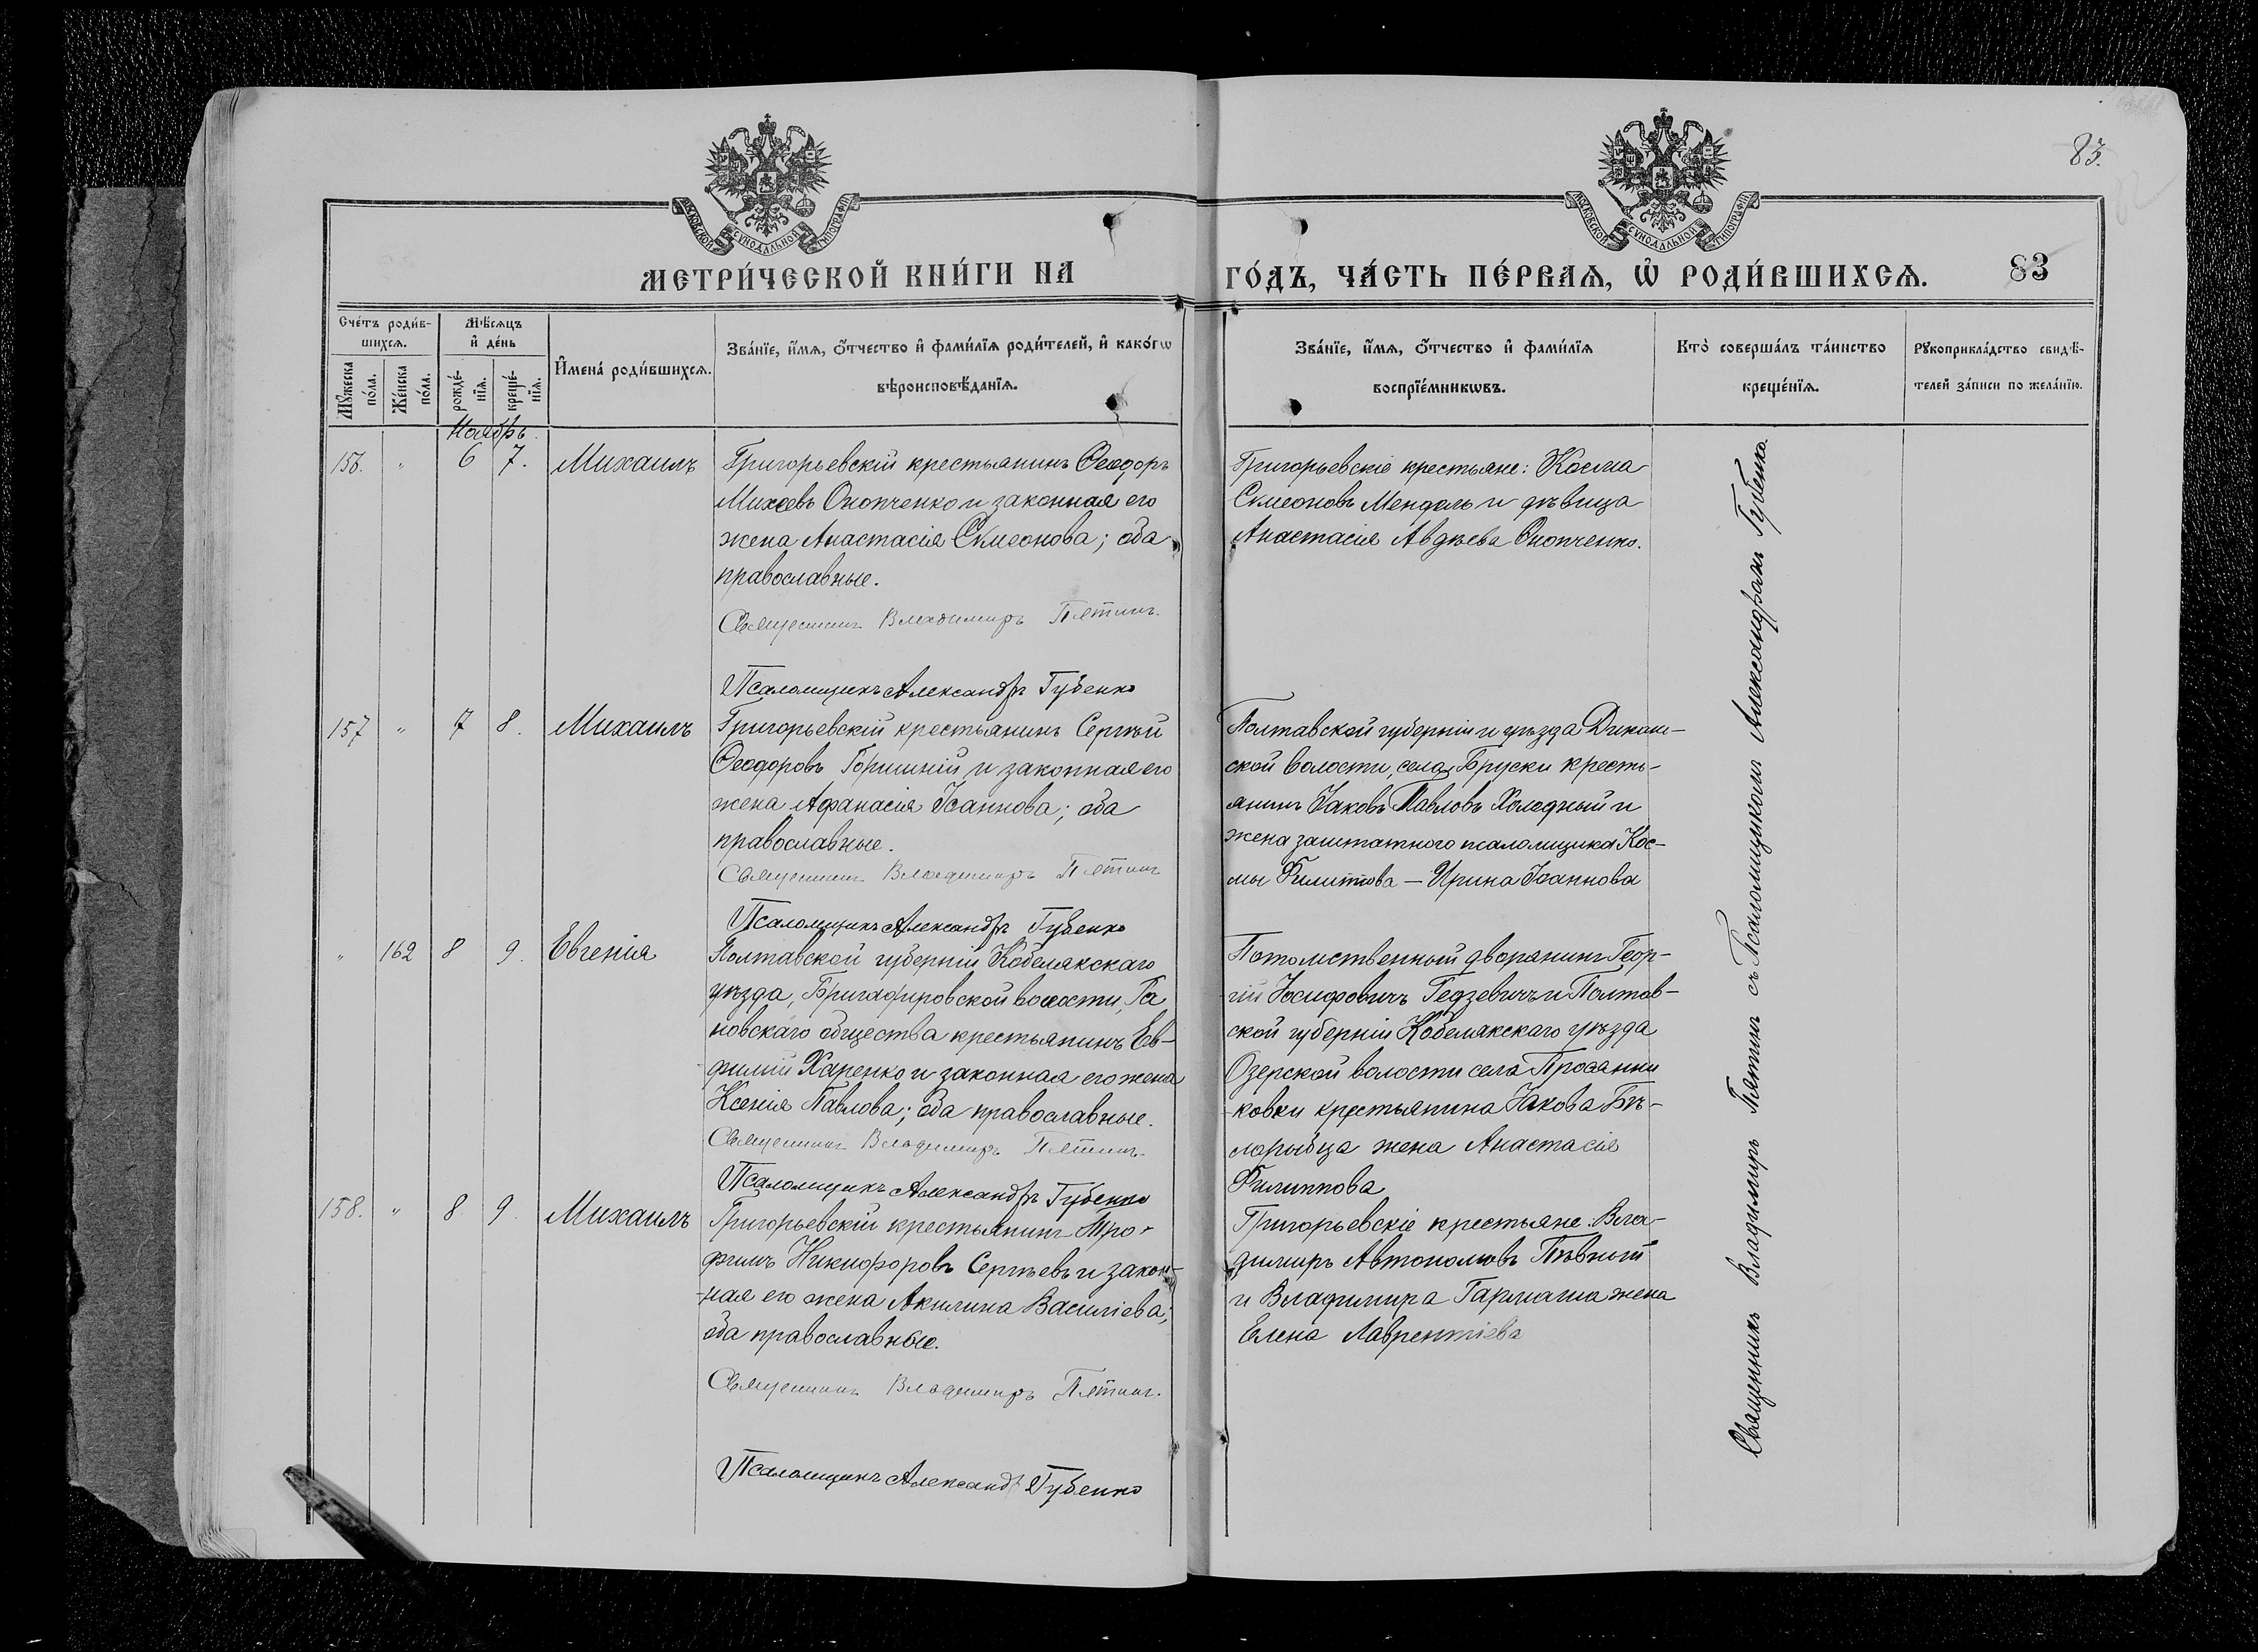 83.
МОСКОВСКОЙ СУНОДАЛЬНОЙ ТИПОГРАФІИ
МОСКОВСКОЙ СУНОДАЛЬНОЙ ТИПОГРАФІИ
МЕТРИ́ЧЕСКОЙ КНИ́ГИ НА ГО́ДЪ, ЧА́СТЬ ПЕ́РВАЯ, Ѽ РОДИ́ВШИХСЯ. 83
Сче́тъ роди́в-
шихся.
Му́жеска
по́ла.
Же́нска
по́ла.
Мѣ́сяцъ
и҆ де́нь
рожде́-
нїя.
креще́-
нїя.
И҆мена̀ роди́вшихся.
Зва́нїе, и҆́мя, ѻ҆́тчество и҆ фами́лїя роди́телей, и҆ како́гѡ
вѣроисповѣ́данїя.
Зва́нїе, и҆́мя, ѻ҆́тчество и҆ фами́лїя
воспрїе́мникѡвъ.
Кто̀ соверша́лъ та́инство
креще́нїя.
Рꙋкоприкла́дство свидѣ́-
телей за́писи по жела́нїю.
Ноябрь.
156. " 6 7. Михаилъ
Григорьевскій крестьянинъ Ѳеодоръ
Михеевъ Онопченко и законная его
жена Анастасія Симеонова; оба
православные.
Священникъ Владимиръ Пятинъ.
Псаломщикъ Александръ Губенко
Григорьевскіе крестьяне: Косма
Симеоновъ Мендель и дѣвица
Анастасія Авдѣева Онопченко.
157 " 7 8. Михаилъ
Григорьевскій крестьянинъ Сергѣй
Ѳеодоровъ Горишній и законная его
жена Афанасія Іоаннова; оба
православные.
Священникъ Владимиръ Пятинъ
Псаломщикъ Александръ Губенко
Полтавской губерніи и уѣзда Дикань-
ской волости, села Бруски кресть-
янинъ Іаковъ Павловъ Холодный и
жена заштатного псаломщика Кос-
мы Филиппова — Ирина Іоаннова
" 162 8 9. Евгенія
Полтавской губерніи Кобелякскаго
уѣзда, Бригадировской волости, Га
новскаго общества крестьянинъ Ев-
фимій Харенко и законная его жена
Ксенія Павлова; оба православные.
Священникъ Владимиръ Пятинъ
Псаломщикъ Александръ Губенко
Потомственный дворянинъ Геор-
гій Іосифовичъ Гедзевичъ и Полтав-
ской губерніи Кобелякскаго уѣзда
Озерской волости села
ковки крестьянина Іакова Бѣ-
лорыбца жена Анастасія
Филиппова
158. " 8. 9. Михаилъ
Григорьевскій крестьянинъ Тро-
фимъ Никифоровъ Сергѣевъ и закон-
ная его жена Акилина Василіева;
оба православные.
Священникъ Владимиръ Пятинъ.
Псаломщикъ Александръ Губенко
Григорьевскіе крестьяне: Вла-
димиръ Автономовъ Пѣвный
и Владимира Гармаша жена
Елена Лаврентіева
Священникъ Владимиръ Пятинъ съ Псаломщикомъ Александромъ Губенко.